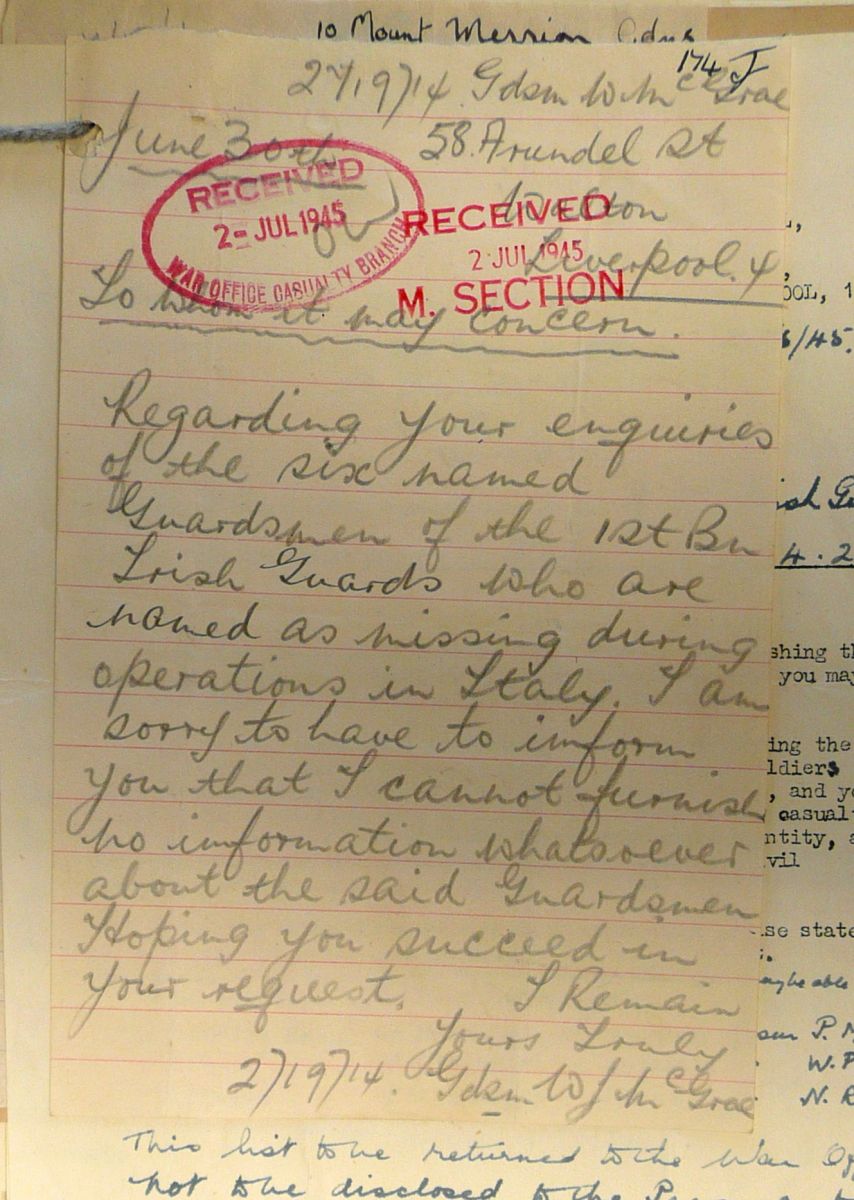 10 Mount Merrion Gdns
174 J
2719714 Gdsm W McGrae
June 30th 58. Arundel St
Walton
Liverpool. 4
RECEIVED
2 - JUL 1945
WAR OFFICE CASUALTY BRANCH
RECEIVED
2 JUL 1945
M. SECTION
To whom it may concern.
Regarding your enquiries
of the six named
Guardsmen of the 1st Bn
Irish Guards who are
named as missing during
operations in Italy. I am
sorry to have to imform
you that I cannot furnish
no imformation whatsoever
about the said Guardsmen
Hoping you succeed in
your request. I Remain
Yours Truly
2719714. Gdsm W J McGrae
OOL, 1
/45.
4.2
shing th
you may
ing the
ldiers
, and yo
casual
ntity, a
vil
se state
maybe able
P. M
W. P
N. R
This list to be returned to the War Off
not to be disclosed to the